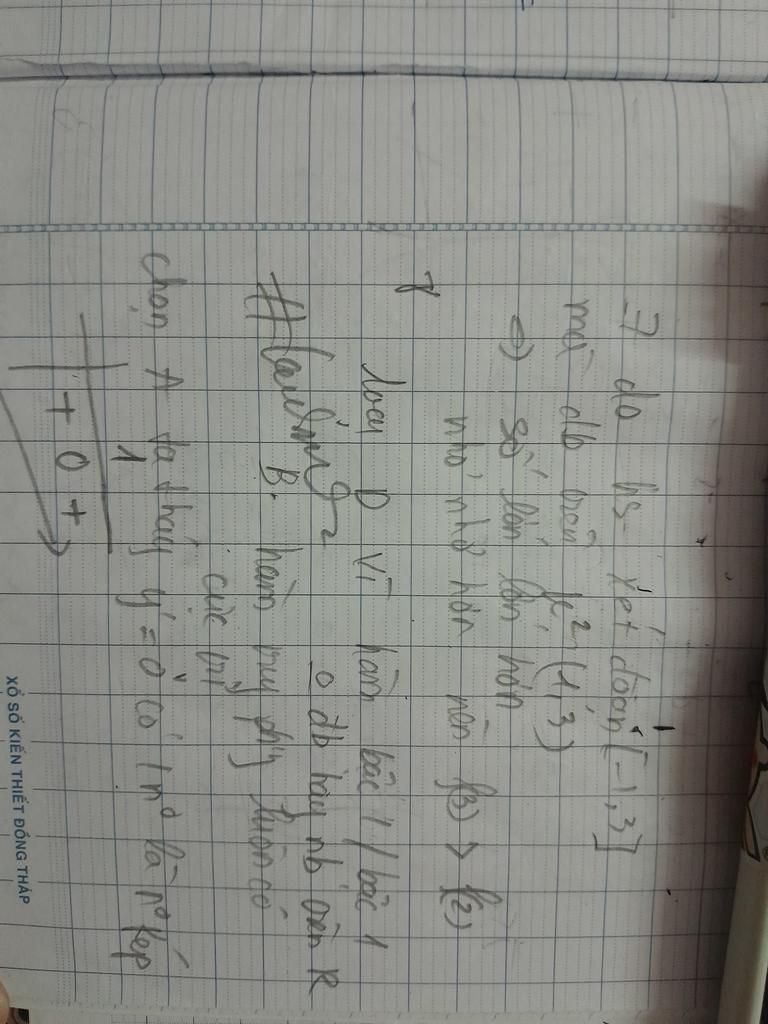 7 do hs xét đoạn [-1,3]
mà đb trên (1,3)
=) số lớn lớn hơn
nhỏ nhỏ hơn nên f(3) > f(2)
8
loại D vì hàm bậc 1 / bậc 1
o đb hay nb trên R
B. hàm trùng luôn có
cực trị
chọn A ta thấy y' = 0 có 1 n° là n° kép
1
+ 0 +
XỔ SỐ KIẾN THIẾT ĐỒNG THÁP